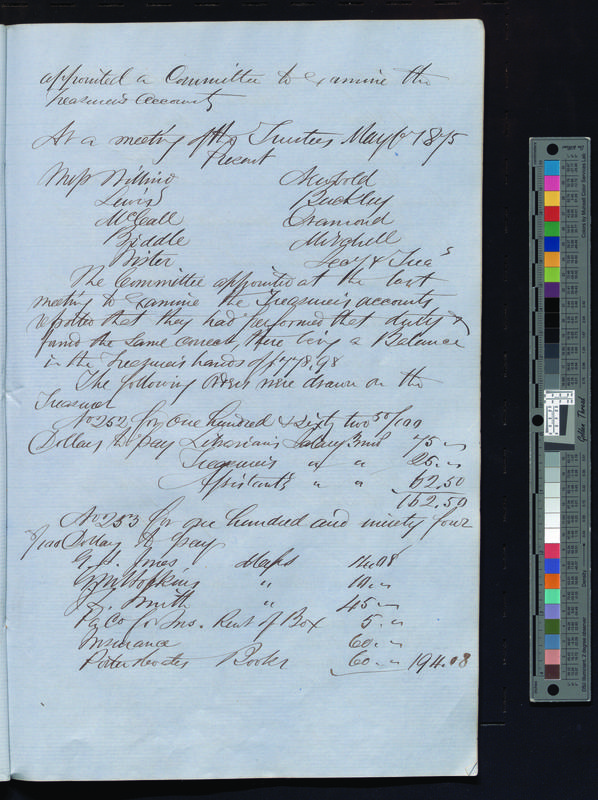 appointed a Committee to examine the
Treasurer's Accounts
At a meeting of the Trustees May 6th 1875
Present
Messrs Willing Newbold
Lewis Buckley
McCall Cramond
Biddle Mitchell
Sister Secy & Treas
The Committee appointed at the last
meeting to examine the Treasurer's accounts
reported that they had performed that duty &
found the same correct, there being a Balance
in the Treasurer's hands of $778.98
The following orders were drawn on the
Treasurer
No 252 for One hundred & sixty two 50/100
Dollars to pay Librarian's Salary 3 mos 75 "
Treasurer's " " 25 "
Assistant's " " 62.50
162.50
No 253 for one hundred and ninety four
8/100 Dollars to pay
Jones Maps 14.08
G M Hopkins " 10 "
Smith " 45 "
Pa Co for Ins. Rent of Box 5 "
Insurance 60 "
Porter & Coates Books 60 " 194.08
Golden Thread